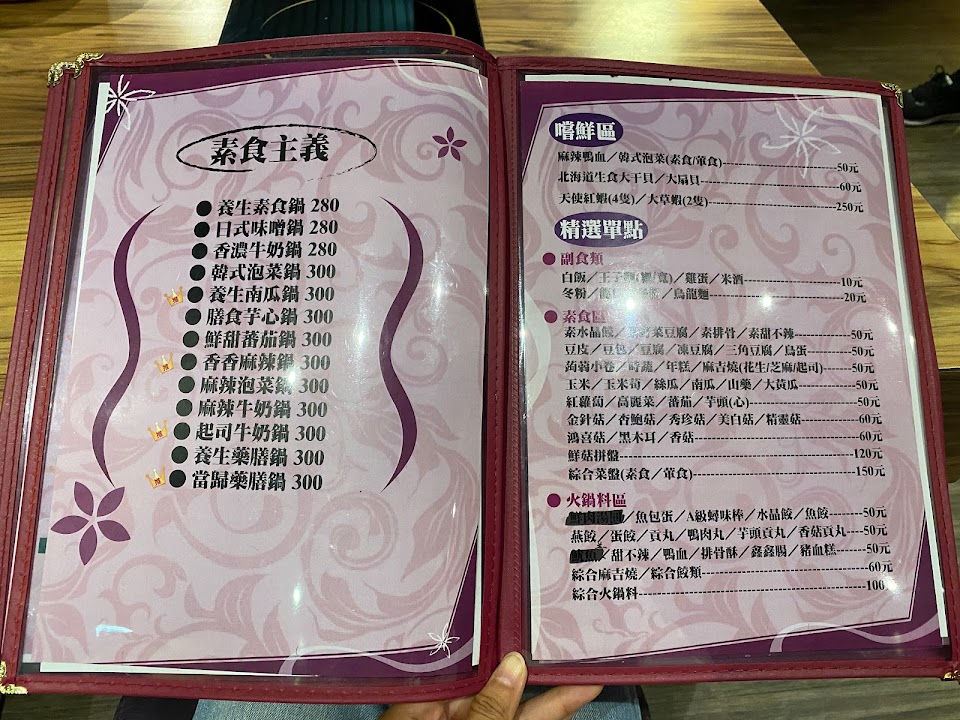 素食主義
養生素食鍋 280
日式味噌鍋 280
香濃牛奶鍋 280
韓式泡菜鍋 300
養生南瓜鍋 300
膳食芋心鍋 300
鮮甜蕃茄鍋 300
香香麻辣鍋 300
麻辣泡菜鍋 300
麻辣牛奶鍋 300
起司牛奶鍋 300
養生藥膳鍋 300
當歸藥膳鍋 300
嚐鮮區
麻辣鴨血／韓式泡菜(素食/葷食)----50元
北海道生食大干貝／大扇貝----60元
天使紅蝦(4隻)／大草蝦(2隻)----250元
精選單點
副食類
白飯／王子麵／雞蛋／米酒----10元
冬粉／烏龍麵----20元
素食區
素水晶餃／菜豆腐／素排骨／素甜不辣----50元
豆皮／豆包／豆腐／凍豆腐／三角豆腐／鳥蛋----50元
蒟蒻小卷／時蔬／年糕／麻吉燒(花生/芝麻/起司)----50元
玉米／玉米筍／絲瓜／南瓜／山藥／大黃瓜----50元
紅蘿蔔／高麗菜／蕃茄／芋頭(心)----50元
金針菇／杏鮑菇／秀珍菇／美白菇／精靈菇----60元
鴻喜菇／黑木耳／香菇----60元
鮮菇拼盤----120元
綜合菜盤(素食／葷食)----150元
火鍋料區
／魚包蛋／A級蟳味棒／水晶餃／魚餃----50元
燕餃／蛋餃／貢丸／鴨肉丸／芋頭貢丸／香菇貢丸----50元
／甜不辣／鴨血／排骨酥／鑫鑫腸／豬血糕----50元
綜合麻吉燒／綜合餃類----60元
綜合火鍋料----100